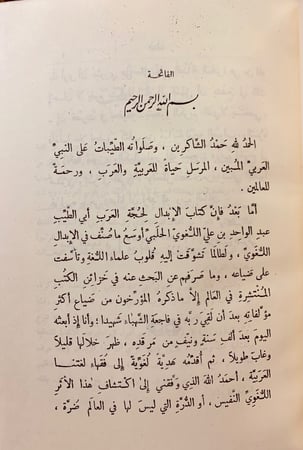 الفاتحة
بسم الله الرحمن الرحيم
الحمد لله حَمْدَ الشّاكرين، وصَلَواتُه الطيّباتُ على النبيّ
العربيّ المُبين، المرسَلِ حياةً للعربيّةِ والعَرَبِ، ورحمةً
للعالمين.
أمّا بَعْدُ فإنّ كتابَ الإبدالِ لِحُجَّةِ العَرَبِ أبي الطَّيِّبِ
عبدِ الواحدِ بن عليٍّ اللُّغويِّ الحلَبيِّ أوسعُ ما صُنِّف في الإبدالِ
اللُّغويِّ، ولَطالَما تشوَّقتْ إليه قلوبُ علماءِ اللُّغةِ وتأسَّفتْ
على ضَياعه، وما صَرفَهم عن البَحثِ عنه في خزائنِ الكتُبِ
المُنتشرةِ في العالَم إلّا ما ذكرَهُ المؤرّخون من ضَياعِ أكثرِ
مؤلّفاتِه بعدَ أن لَقِيَ ربَّه في فاجعةِ الشَّهباءِ شهيداً؛ وأنا إذ أبعثُه
اليومَ بعدَ ألفِ سنةٍ ونَيِّفٍ من مَرقدِه، ظهرَ خلالَها قليلاً
وغابَ طويلاً، ثم أُقدِّمُه هديّةً لُغَويّةً إلى فُقَهاءِ لُغتنا
العربيّة، أحمَدُ اللهَ الذي وَفَّقني إلى اكتشافِ هذا الأثرِ
اللُّغَويِّ النَّفيس، أو الدُّرَّةِ التي ليسَ لها في العالَم ضَرَّة،